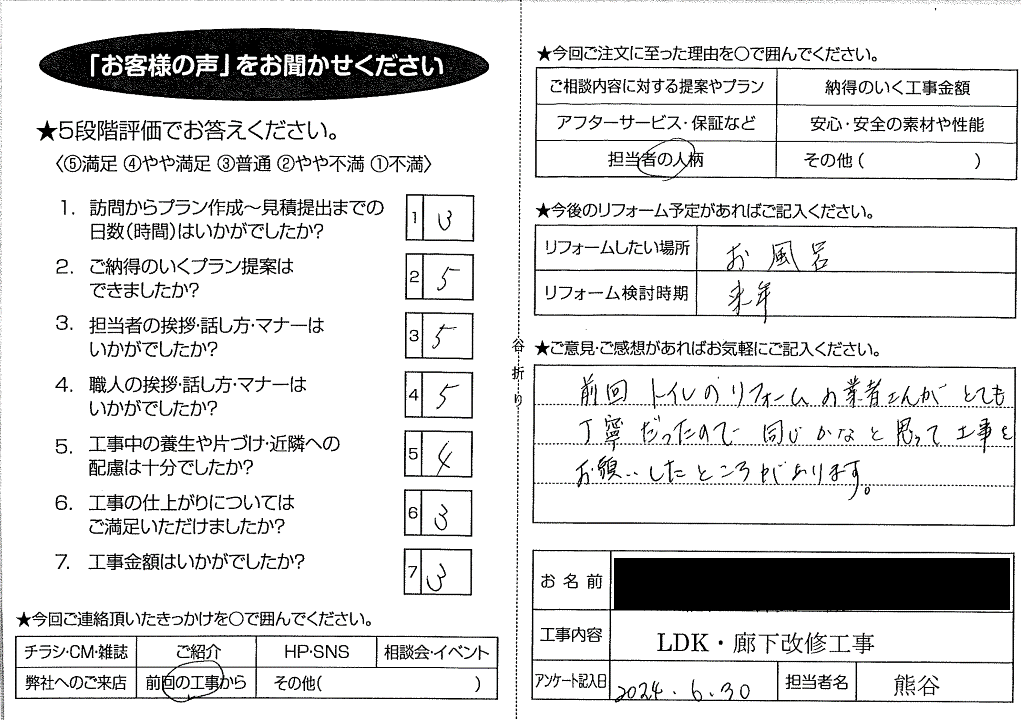 「お客様の声」をお聞かせください
★5段階評価でお答えください。
〈⑤満足 ④やや満足 ③普通 ②やや不満 ①不満〉
1. 訪問からプラン作成～見積提出までの
日数(時間)はいかがでしたか?
1 3
2. ご納得のいくプラン提案は
できましたか?
2 5
3. 担当者の挨拶・話し方・マナーは
いかがでしたか?
3 5
4. 職人の挨拶・話し方・マナーは
いかがでしたか?
4 5
5. 工事中の養生や片づけ・近隣への
配慮は十分でしたか?
5 4
6. 工事の仕上がりについては
ご満足いただけましたか?
6 3
7. 工事金額はいかがでしたか?
7 3
★今回ご連絡頂いたきっかけを○で囲んでください。
チラシ・CM・雑誌 ご紹介 HP・SNS 相談会・イベント
弊社へのご来店 前回の工事から その他( )
谷折り
★今回ご注文に至った理由を○で囲んでください。
ご相談内容に対する提案やプラン 納得のいく工事金額
アフターサービス・保証など 安心・安全の素材や性能
担当者の人柄 その他( )
★今後のリフォーム予定があればご記入ください。
リフォームしたい場所 お風呂
リフォーム検討時期 来年
★ご意見・ご感想があればお気軽にご記入ください。
前回 トイレのリフォームの業者さんが とても
丁寧だったので 同じかなと思って工事を
お願いしたところがあります。
お名前
工事内容 LDK・廊下改修工事
アンケート記入日 2024.6.30 担当者名 熊谷